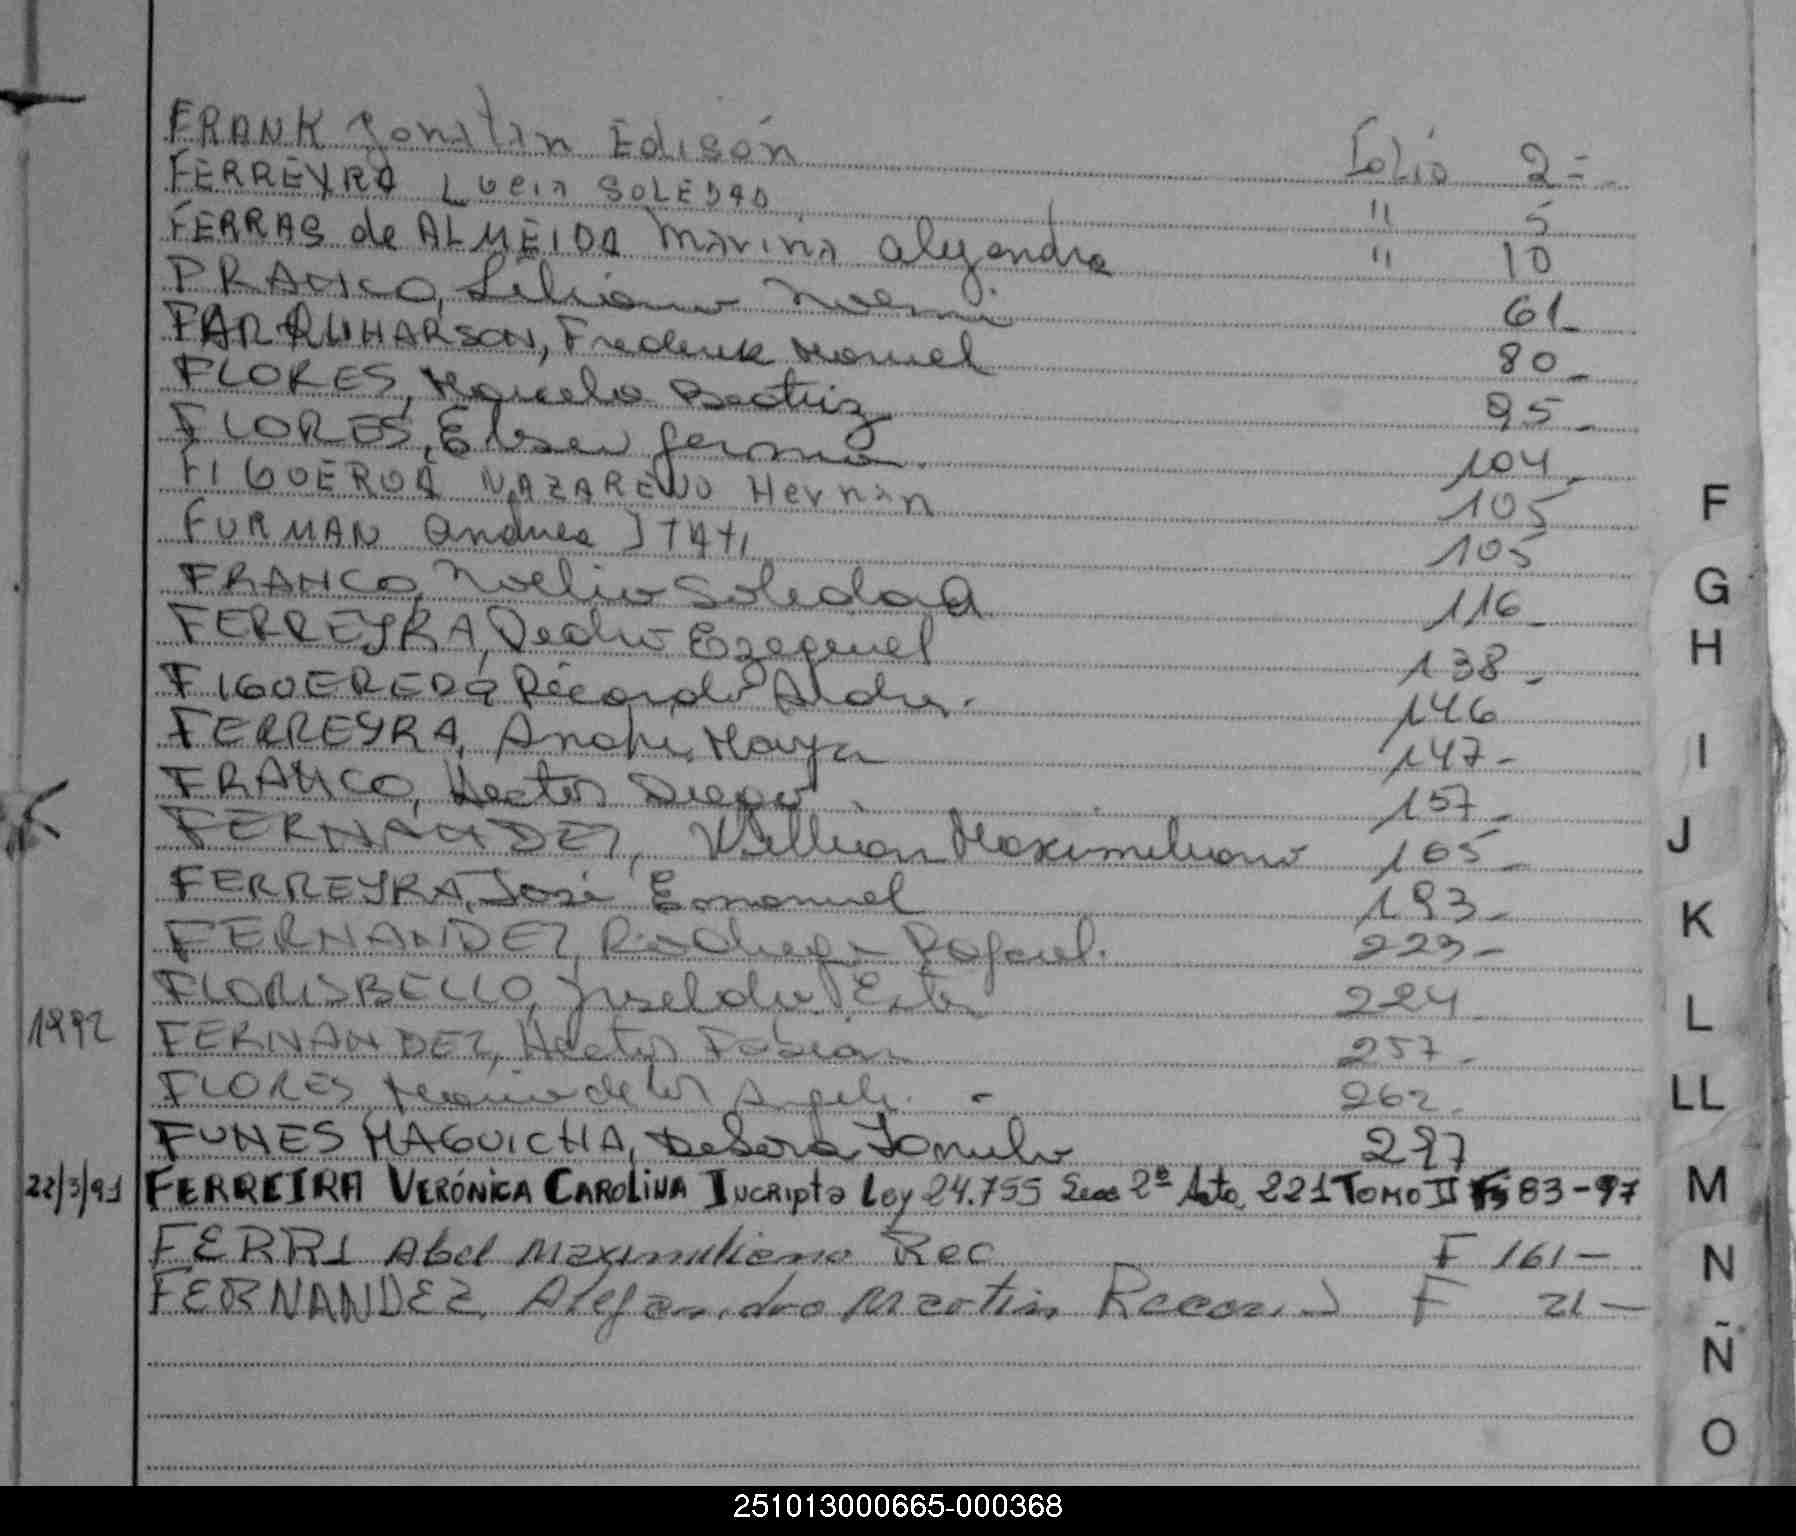 FRANK Jonatan Edisón Folio 2=
FERREYRA Lucia SOLEDAD " 5
FERRAS de ALMEIDA Marina Alejandra " 10
FRANCO, Liliana Noemi 61-
FARRUHARSON, Frederik Manuel 80-
FLORES, Marcela Beatriz 95-
FLORES, Elsa 104-
FIGUEROA NAZARENO Hernan 105
FURMAN Andrea ITATI 105
FRANCO, Noelia Soledad 116-
FERREYRA, Pedro Ezequiel 138-
FIGUEREDO Ricardo 146
FERREYRA, 147-
FRANCO, Hector Diego 157-
FERNANDEZ, Willian Maximiliano 165-
FERREYRA, José Emanuel 193-
FERNANDEZ, Rodrigo Rafael. 223-
FLORISBELLO, Ester 224
1992 FERNANDEZ, Hector Fabian 257-
FLORES, Maria de los Angeles. - 262.
FUNES MAGUICHA, Debora 297
22/3/91 FERREIRA VERÓNICA CAROLINA Incripta Ley 24.755 Secc 2º Acta 221 TOMO II Fs 83-97
FERRI Abel Maximiliano Rec F 161-
FERNANDEZ, Alejandro Martin F 21-
F
G
H
I
J
K
L
LL
M
N
Ñ
O
251013000665-000368